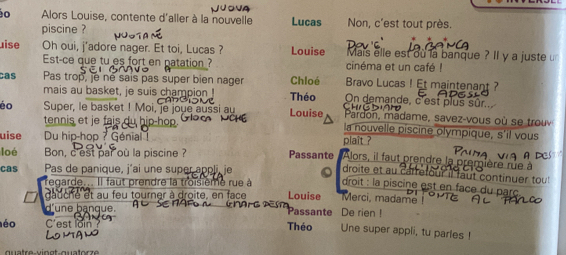 NUOVA
éo Alors Louise, contente d'aller à la nouvelle
piscine ?
NUOTARE
uise Oh oui, j'adore nager. Et toi, Lucas ?
Est-ce que tu es fort en natation ?
SEI BRAVO A
cas Pas trop, je ne sais pas super bien nager
mais au basket, je suis champion !
CAMPIONE
éo Super, le basket ! Moi, je joue aussi au
tennis et je fais du hip-hop. GIOCA
FACCIO
uise Du hip-hop ? Génial !
DOV'È
loé Bon, c'est par où la piscine ?
cas Pas de panique, j'ai une super appli, je
TERZA
regarde... Il faut prendre la troisième rue à
SINISTRA
gauche et au feu tourner à droite, en face
d'une banque. AL SEMAFORO
BANCA
éo C'est loin ?
LONTANO
quatre-vingt-quatorze
Lucas Non, c'est tout près.
DOV'È LA BANCA
Louise Mais elle est où la banque ? Il y a juste un
cinéma et un café !
Chloé Bravo Lucas ! Et maintenant ?
E ADESSO
Théo On demande, c'est plus sûr...
CHIEDIAMO
Louise Pardon, madame, savez-vous où se trouv
la nouvelle piscine olympique, s'il vous
plaît ?
PRIMA VIA A DEST
Passante Alors, il faut prendre la première rue à
droite et au carrefour il faut continuer tout
droit : la piscine est en face du parc.
DI FRONTE AL PARCO
Louise Merci, madame !
Passante De rien !
Théo Une super appli, tu parles !